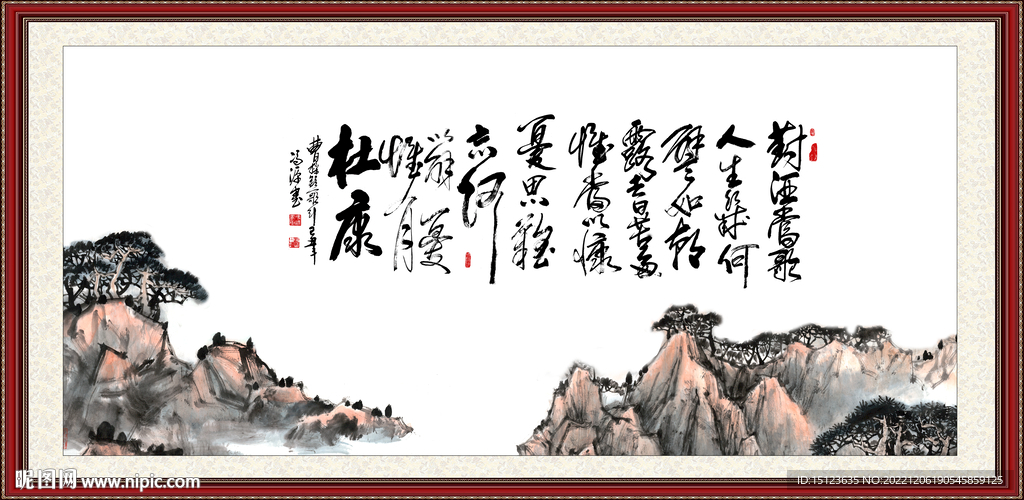 對酒當歌
人生幾何
譬如朝
露去日苦多
慨當以慷
憂思難
忘何
以解憂
惟有
杜康
曹操短歌行己丑年
書
昵图网 www.nipic.com
ID:15123635 NO:20221206190545859125